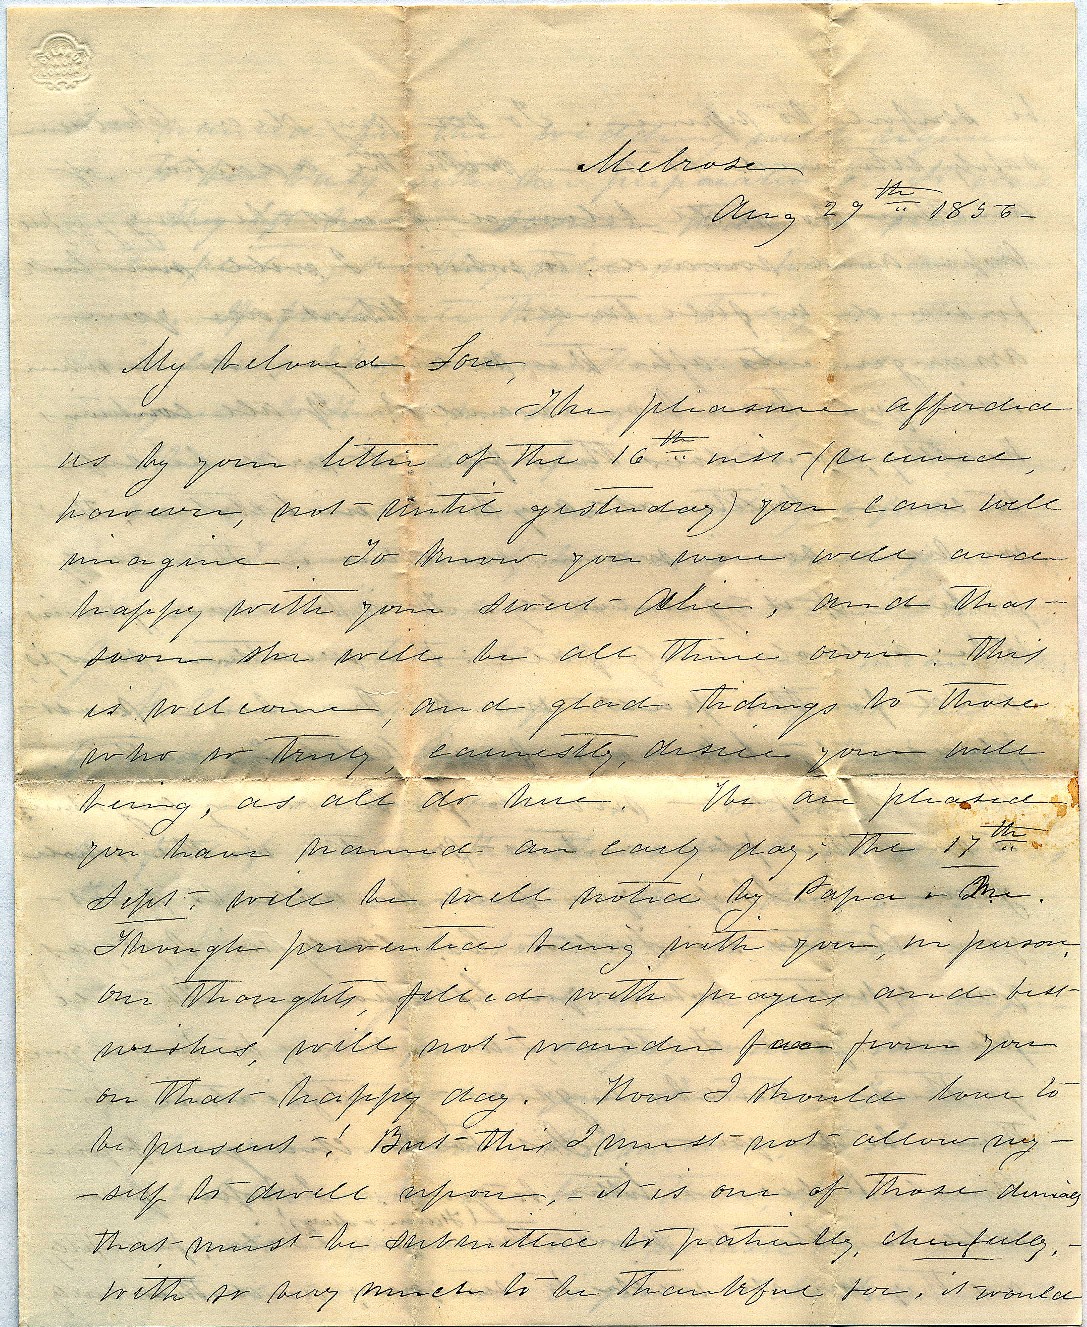 Melrose
Aug 29th 1856-
My beloved Son,
The pleasure afforded
us by your letter of the 16th inst- (received,
however, not until yesterday) you can well
imagine. To know you were well and
happy with your sweet Allie, and that
soon she will be all thine own: this
is welcome, and glad tidings to those
who so truly, earnestly, desire your well
being, as all do here. We are pleased
you have named an early day; the 17th
Sept. will be well noted by Papa & Me.
Though prevented being with you, in person,
our thoughts, filled with prayers and best
wishes, will not wander far from you
on that happy day. How I should love to
be present! But this I must not allow my-
-self to dwell upon, - it is one of those denials
that must be submitted to patiently, cheerfully, -
with so very much to be thankful for, it would